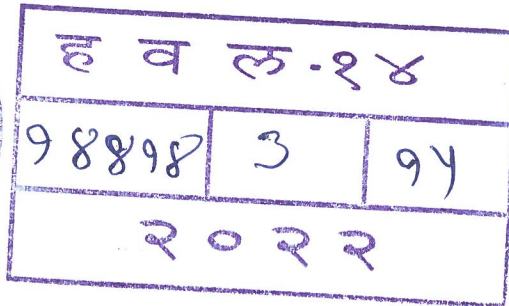 ह व ल - १४
१४४१४ 3 १५
२०२२